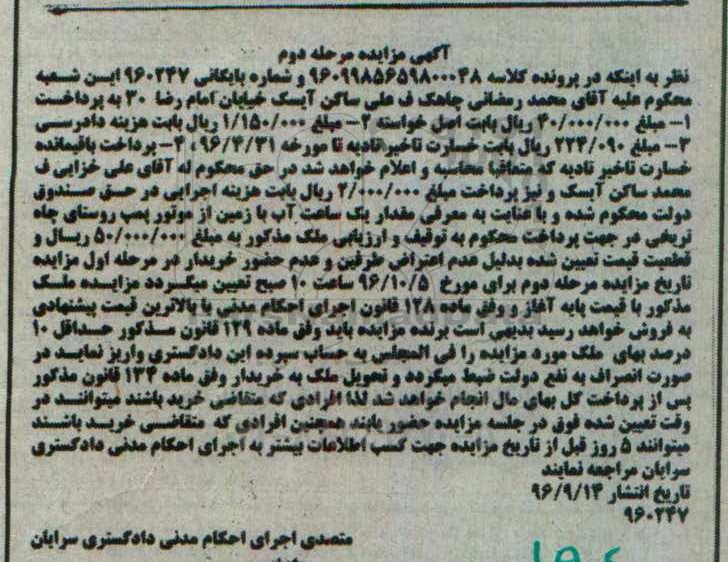 آگهی مزایده مرحله دوم
نظر به اینکه در پرونده کلاسه ۹۶۰۹۹۸۵۶۵۹۸۰۰۰۴۸ و شماره بایگانی ۹۶۰۲۴۷ ایـن شـعبه
محکوم علیه آقای محمد رمضانی چاهک ف علی ساکن آیسک خیابان امام رضا ۳۰ به پرداخـت
۱- مبلغ ۴۰/۰۰۰/۰۰۰ ریال بابت اصل خواسته ۲- مبلغ ۱/۱۵۰/۰۰۰ ریال بابت هزینه دادرسـی
۳- مبلغ ۲۲۴/۰۹۰ ریال بابت خسارت تاخیر تادیه تا مورخه ۹۶/۴/۳۱ ۴- پرداخت باقیمانده
خسارت تاخیر تادیه که متعاقبا محاسبه و اعلام خواهد شد در حق محکوم له آقای علی خزایی ف
محمد ساکن آیسک و نیز پرداخت مبلغ ۲/۰۰۰/۰۰۰ ریال بابت هزینه اجرایی در حـق صـندوق
دولت محکوم شده و با عنایت به معرفی مقدار یک ساعت آب با زمین از موتور پمپ روستای چاه
تریخی در جهت پرداخت محکوم به توقیف و ارزیابی ملک مذکور به مبلغ ۵۰/۰۰۰/۰۰۰ ریـال و
قطعیت قیمت تعیین شده بدلیل عدم اعتراض طرفین و عدم حضور خریدار در مرحله اول مزایده
تاریخ مزایده مرحله دوم برای مورخ ۹۶/۱۰/۵ ساعت ۱۰ صبح تعیین میگـردد مزایـده ملـک
مذکور با قیمت پایه آغاز و وفق ماده ۱۲۸ قانون اجرای احکام مدنی با بالاترین قیمت پیشنهادی
به فروش خواهد رسید بدیهی است برنده مزایده باید وفق ماده ۱۲۹ قانون مـذکور حـداقل ۱۰
درصد بهای ملک مورد مزایده را فی المجلس به حساب سپرده این دادگستری واریز نمایـد در
صورت انصراف به نفع دولت ضبط میگردد و تحویل ملک به خریدار وفق ماده ۱۳۴ قانون مذکور
پس از پرداخت کل بهای مال انجام خواهد شد لذا افرادی که متقاضی خرید باشند میتواننـد در
وقت تعیین شده فوق در جلسه مزایده حضور یابند همچنین افرادی که متقاضـی خریـد باشـند
میتوانند ۵ روز قبل از تاریخ مزایده جهت کسب اطلاعات بیشتر به اجرای احکام مدنی دادگستری
سرایان مراجعه نمایند
تاریخ انتشار ۹۶/۹/۱۴
۹۶۰۲۴۷
متصدی اجرای احکام مدنی دادگستری سرایان